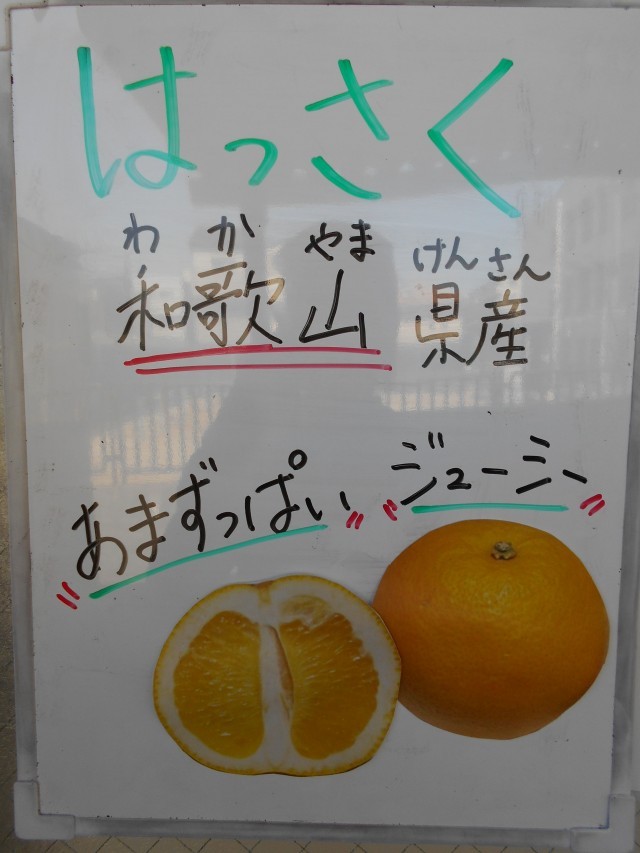 はっさく
わ か やま けんさん
和歌山県産
"あまずっぱい" "ジューシー"